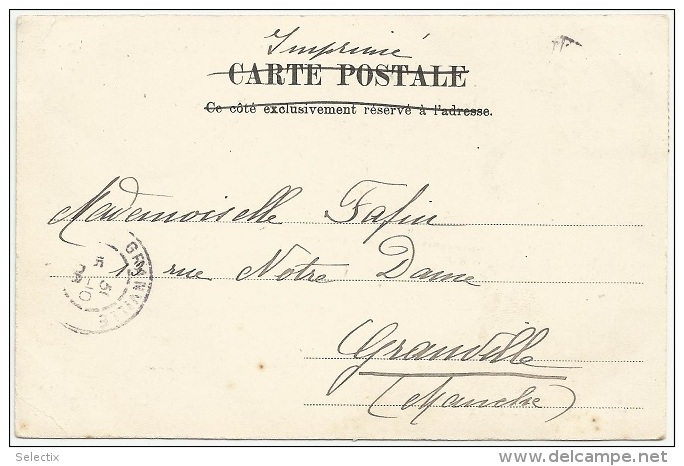 Imprimé
CARTE POSTALE
Ce côté exclusivement réservé à l'adresse.
Mademoiselle Fafin
13 rue Notre Dame
Granville
(Manche)
GRANVILLE
Selectix
www.delcampe.net